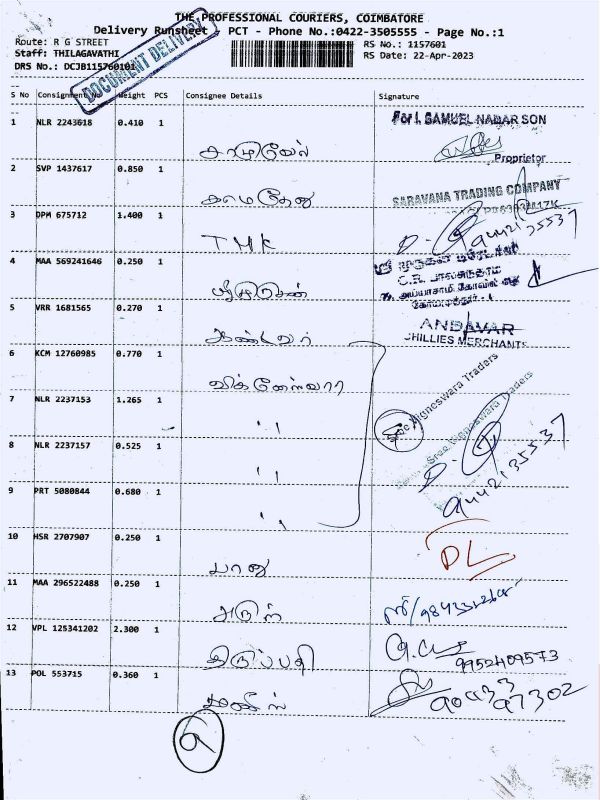 THE PROFESSIONAL COURIERS, COIMBATORE
Delivery Runsheet PCT - Phone No.:0422-3505555 - Page No.:1
Route: R G STREET
RS No.: 1157601
Staff: THILAGAVATHI
RS Date: 22-Apr-2023
DRS No.: DCJB115760101
DOCUMENT DELIVERY
S No Consignment No Weight PCS Consignee Details Signature
1 NLR 2243618 0.410 1
For I. SAMUEL NADAR SON
Proprietor
2 SVP 1437617 0.850 1 காமதேனு
SARAVANA TRADING COMPANY
3 DPM 675712 1.400 1 TMK
9442135537
4 MAA 569241646 0.250 1
ஸ்ரீ முருகன் டிரேடர்ஸ்
C.R. பாலசுந்தரம்
5 VRR 1681565 0.270 1
ANDAVAR
CHILLIES MERCHANTS
6 KCM 12760985 0.770 1 விக்னேஸ்வரா
Sree Vigneswara Traders
7 NLR 2237153 1.265 1 ''
Sree Vigneswara Traders
8 NLR 2237157 0.525 1 ''
9442135537
9 PRT 5080844 0.680 1 ''
10 HSR 2707907 0.250 1 பானு
DL
11 MAA 296522488 0.250 1 அருள்
12 VPL 125341202 2.300 1 திருப்பதி
9952409573
13 POL 553715 0.360 1
9043397302